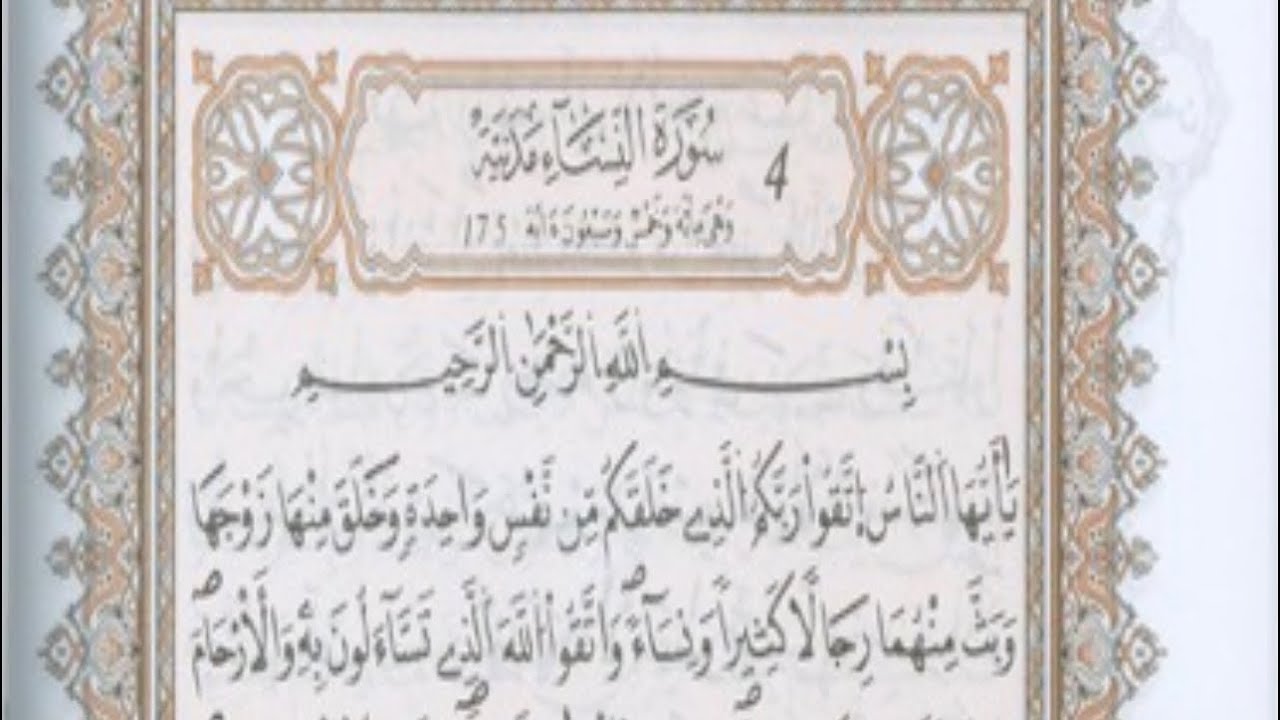 4 سُورَةُ النِّسَآءِ مَدَنِيَّةٌ
وَهْيَ مِائَةٌ وَخَمْسٌ وَسَبْعُونَ ءَايَةً 175
بِسْمِ اللَّهِ الرَّحْمَٰنِ الرَّحِيمِ
يَٰأَيُّهَا اَلنَّاسُ اِتَّقُواْ رَبَّكُمُ اُلَّذِے خَلَقَكُم مِّن نَّفْسٍ وَاحِدَةٍ وَخَلَقَ مِنْهَا زَوْجَهَا
وَبَثَّ مِنْهُمَا رِجَالًا كَثِيراً وَنِسَآءً وَاتَّقُواْ اُللَّهَ اَلَّذِے تَسَّآءَلُونَ بِهِۦ وَالْأَرْحَامَ